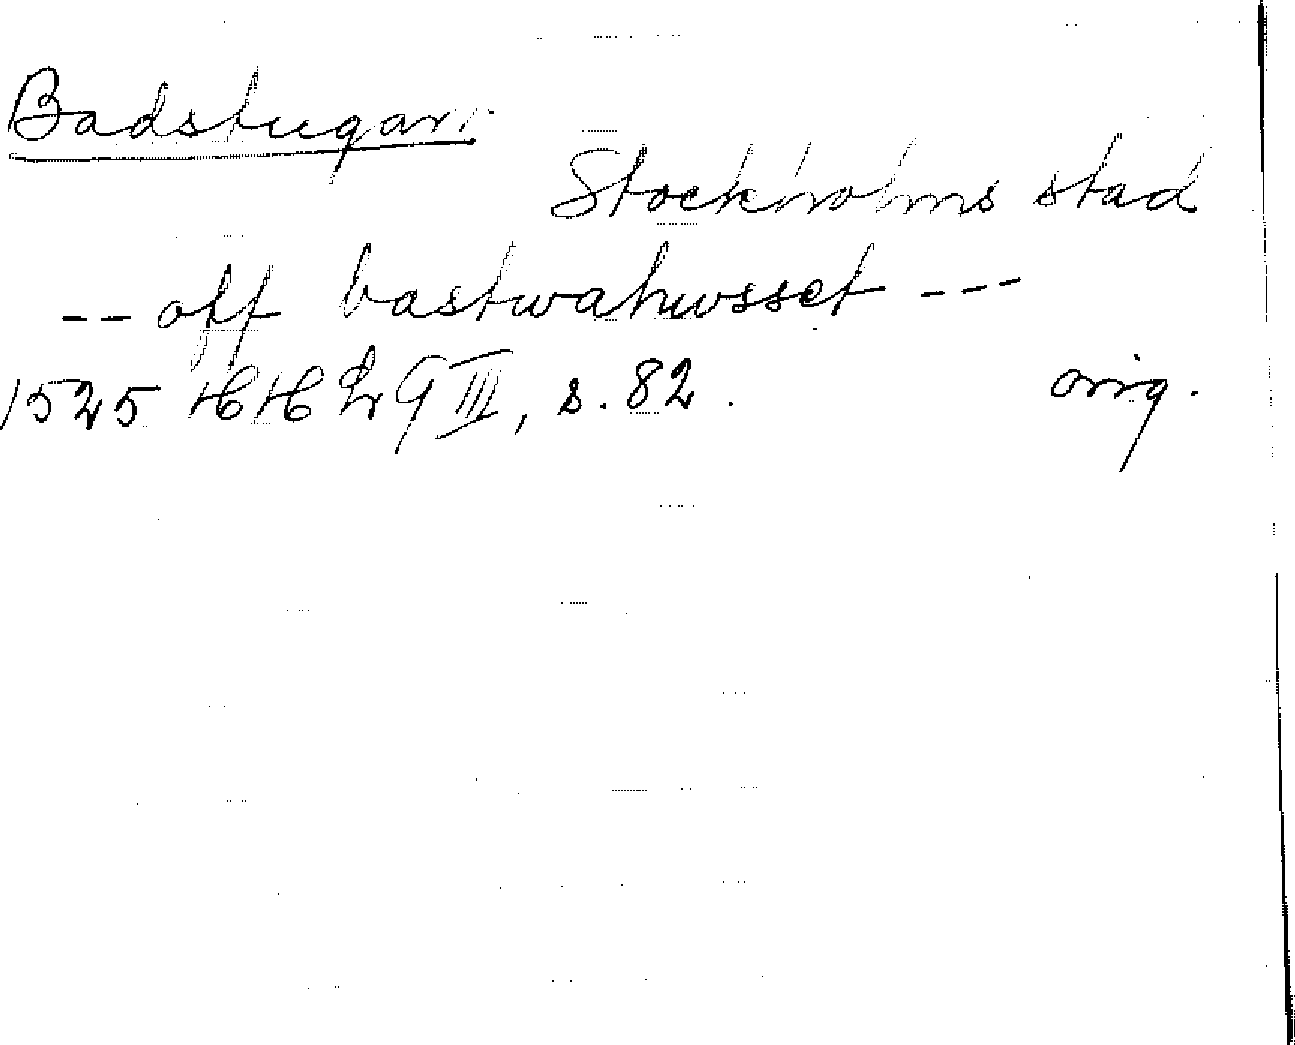 Badstugan
Stockholms stad
-- aff bastwahwsset ---
1525 HH29III, s. 82. orig.